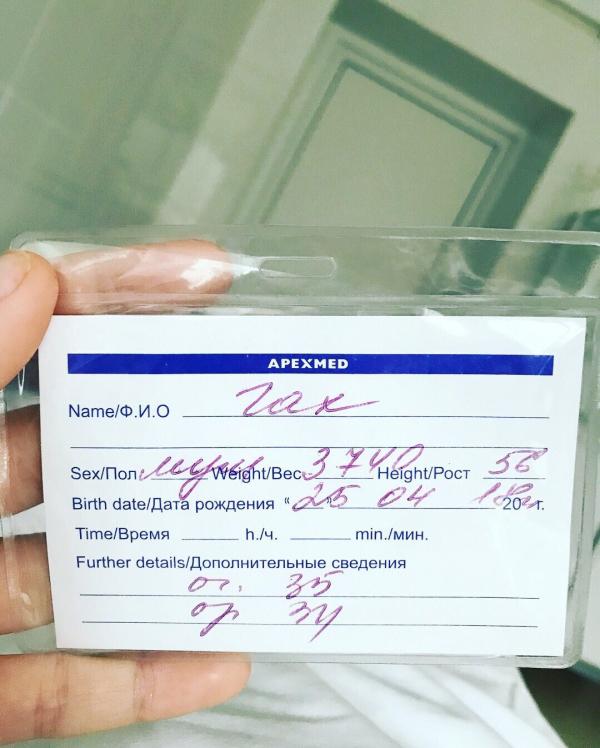 APEXMED
Name/Ф.И.О Гах
Sex/Пол муж Weight/Вес 3740 Height/Рост 56
Birth date/Дата рождения “ 25 ” 04 2018 г.
Time/Время h./ч. min./мин.
Further details/Дополнительные сведения
ог. 35
ор 34